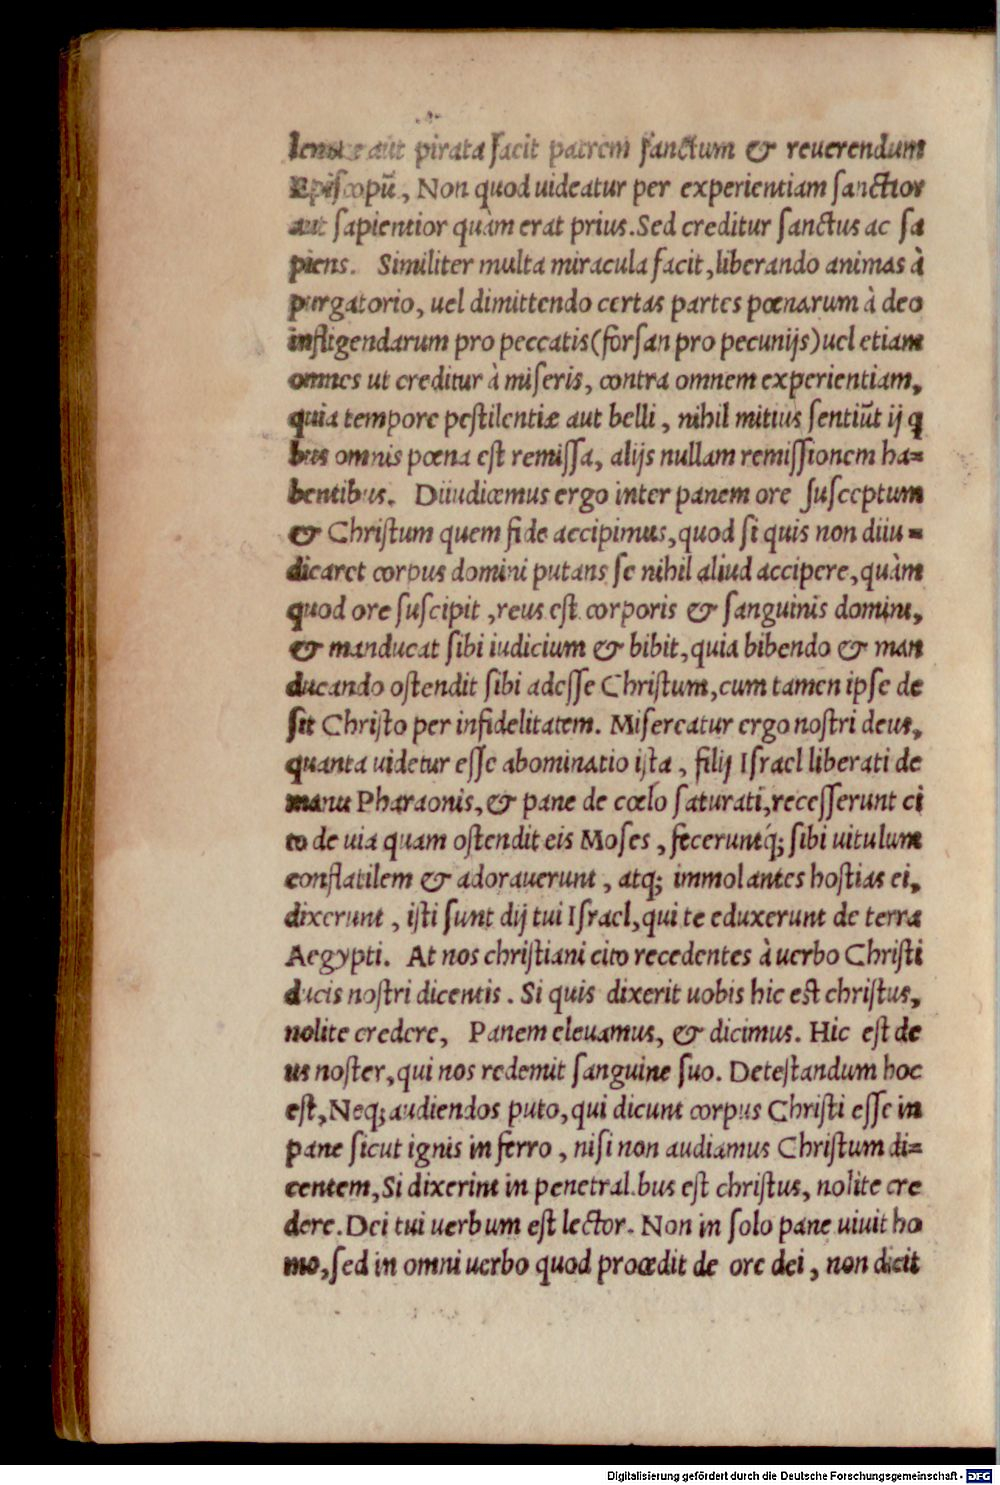 lenone aut pirata facit patrem ſanctum & reuerendum
Epiſcopū, Non quod uideatur per experientiam ſanctior
aut ſapientior quàm erat prius. Sed creditur ſanctus ac ſa
piens. Similiter multa miracula facit, liberando animas à
purgatorio, uel dimittendo certas partes pœnarum à deo
infligendarum pro peccatis (forſan pro pecunijs) uel etiam
omnes ut creditur à miſeris, contra omnem experientiam,
quia tempore peſtilentiæ aut belli, nihil mitius ſentiūt ij q
bus omnis pœna eſt remiſſa, alijs nullam remiſſionem ha=
bentibus. Diiudicemus ergo inter panem ore ſuſceptum
& Chriſtum quem fide accipimus, quod ſi quis non diiu=
dicaret corpus domini putans ſe nihil aliud accipere, quàm
quod ore ſuſcipit, reus eſt corporis & ſanguinis domini,
& manducat ſibi iudicium & bibit, quia bibendo & man
ducando oſtendit ſibi adeſſe Chriſtum, cum tamen ipſe de
ſit Chriſto per infidelitatem. Miſereatur ergo noſtri deus,
quanta uidetur eſſe abominatio iſta, filij Iſrael liberati de
manu Pharaonis, & pane de cœlo ſaturati, receſſerunt ci
to de uia quam oſtendit eis Moſes, feceruntq́; ſibi uitulum
conflatilem & adorauerunt, atq; immolantes hoſtias ei,
dixerunt, iſti ſunt dij tui Iſrael, qui te eduxerunt de terra
Aegypti. At nos chriſtiani cito recedentes à uerbo Chriſti
ducis noſtri dicentis. Si quis dixerit uobis hic eſt chriſtus,
nolite credere, Panem eleuamus, & dicimus. Hic eſt de
us noſter, qui nos redemit ſanguine ſuo. Deteſtandum hoc
eſt, Neq; audiendos puto, qui dicunt corpus Chriſti eſſe in
pane ſicut ignis in ferro, niſi non audiamus Chriſtum di=
centem, Si dixerint in penetral.bus eſt chriſtus, nolite cre
dere. Dei tui uerbum eſt lector. Non in ſolo pane uiuit ho
mo, ſed in omni uerbo quod procedit de ore dei, non dicit
Digitalisierung gefördert durch die Deutsche Forschungsgemeinschaft - DFG